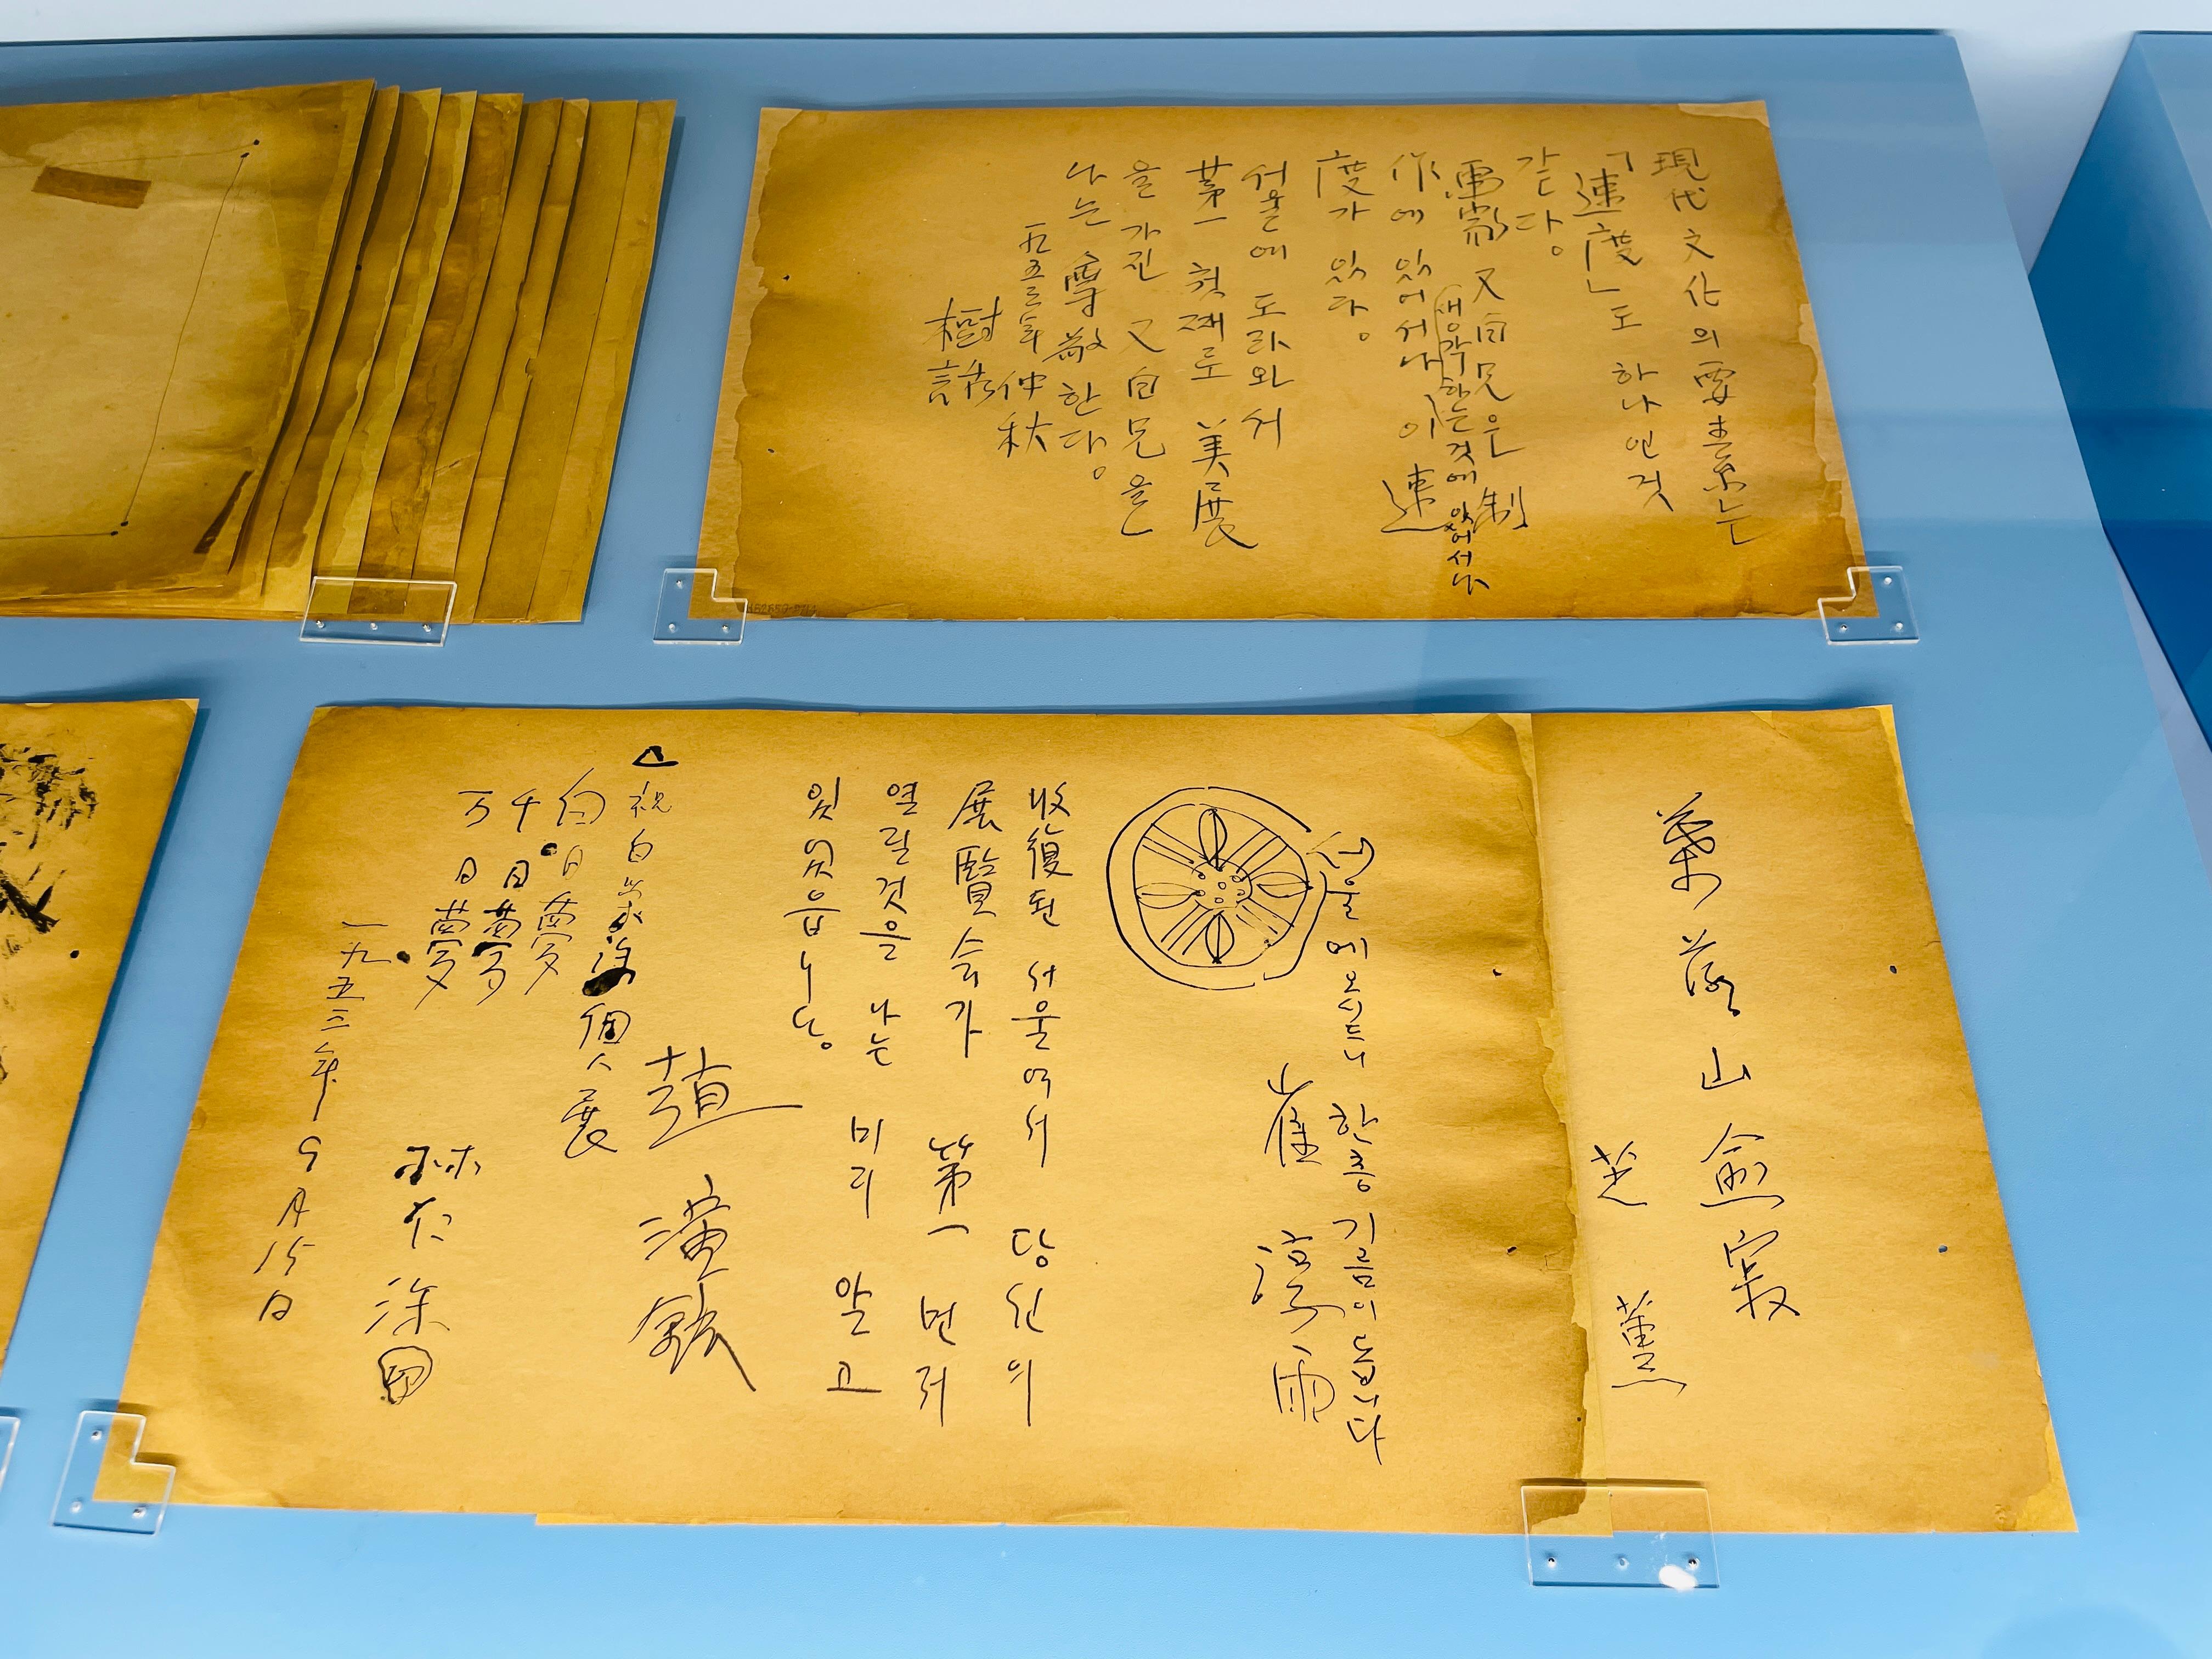 現代文化의 要素는
「速度」도 하나인 것
같다。
雷蒙 又白兄은 制
생각하는것에 있어서나
作에 있어서나 이 速
度가 있다。
서울에 도라와서
第一 첫째로 美展
을 가진 又白兄을
나는 尊敬한다。
一九五三年 仲秋
樹話
葉落山愈寂
芝薰
서울에 오시드니 한층 기름이 놉니다
崔淳雨
收復된 서울에서 당신의
展覽会가 第一 먼저
열릴것을 나는 미리 알고
있었읍니다。
趙演鉉
祝白榮洙個人展
白日夢
千日夢
万日夢
一九五三年 9月 15日